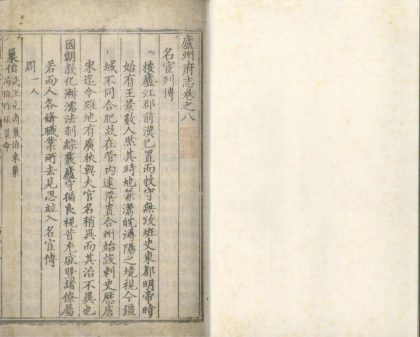 廬州府志卷之八
名官列傳
按廬江郡前漢已置而牧守無攷班史東都明帝時
始有王景數人然其時地兼灊皖潯陽之境視今疆
域不同合肥故在管內遠梁置合州始設刺史歷唐
宋迄今雖地有廣狹與夫官名稍異而其治不異也
國朝教化漸濡法制綜覈廬守循良視昔尤盛暨諸僚屬
若而人各舉職業所去見思竝入名官傳
周一人
巢伯